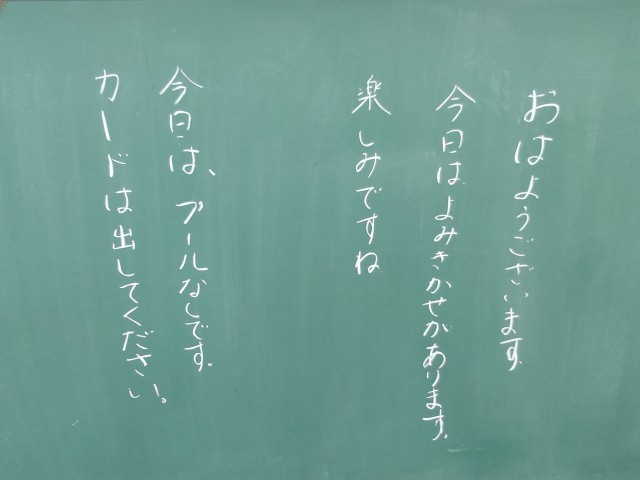 おはようございます.
今日はよみきかせがあります.
楽しみですね
今日は、プールなしです.
カードは出してください。